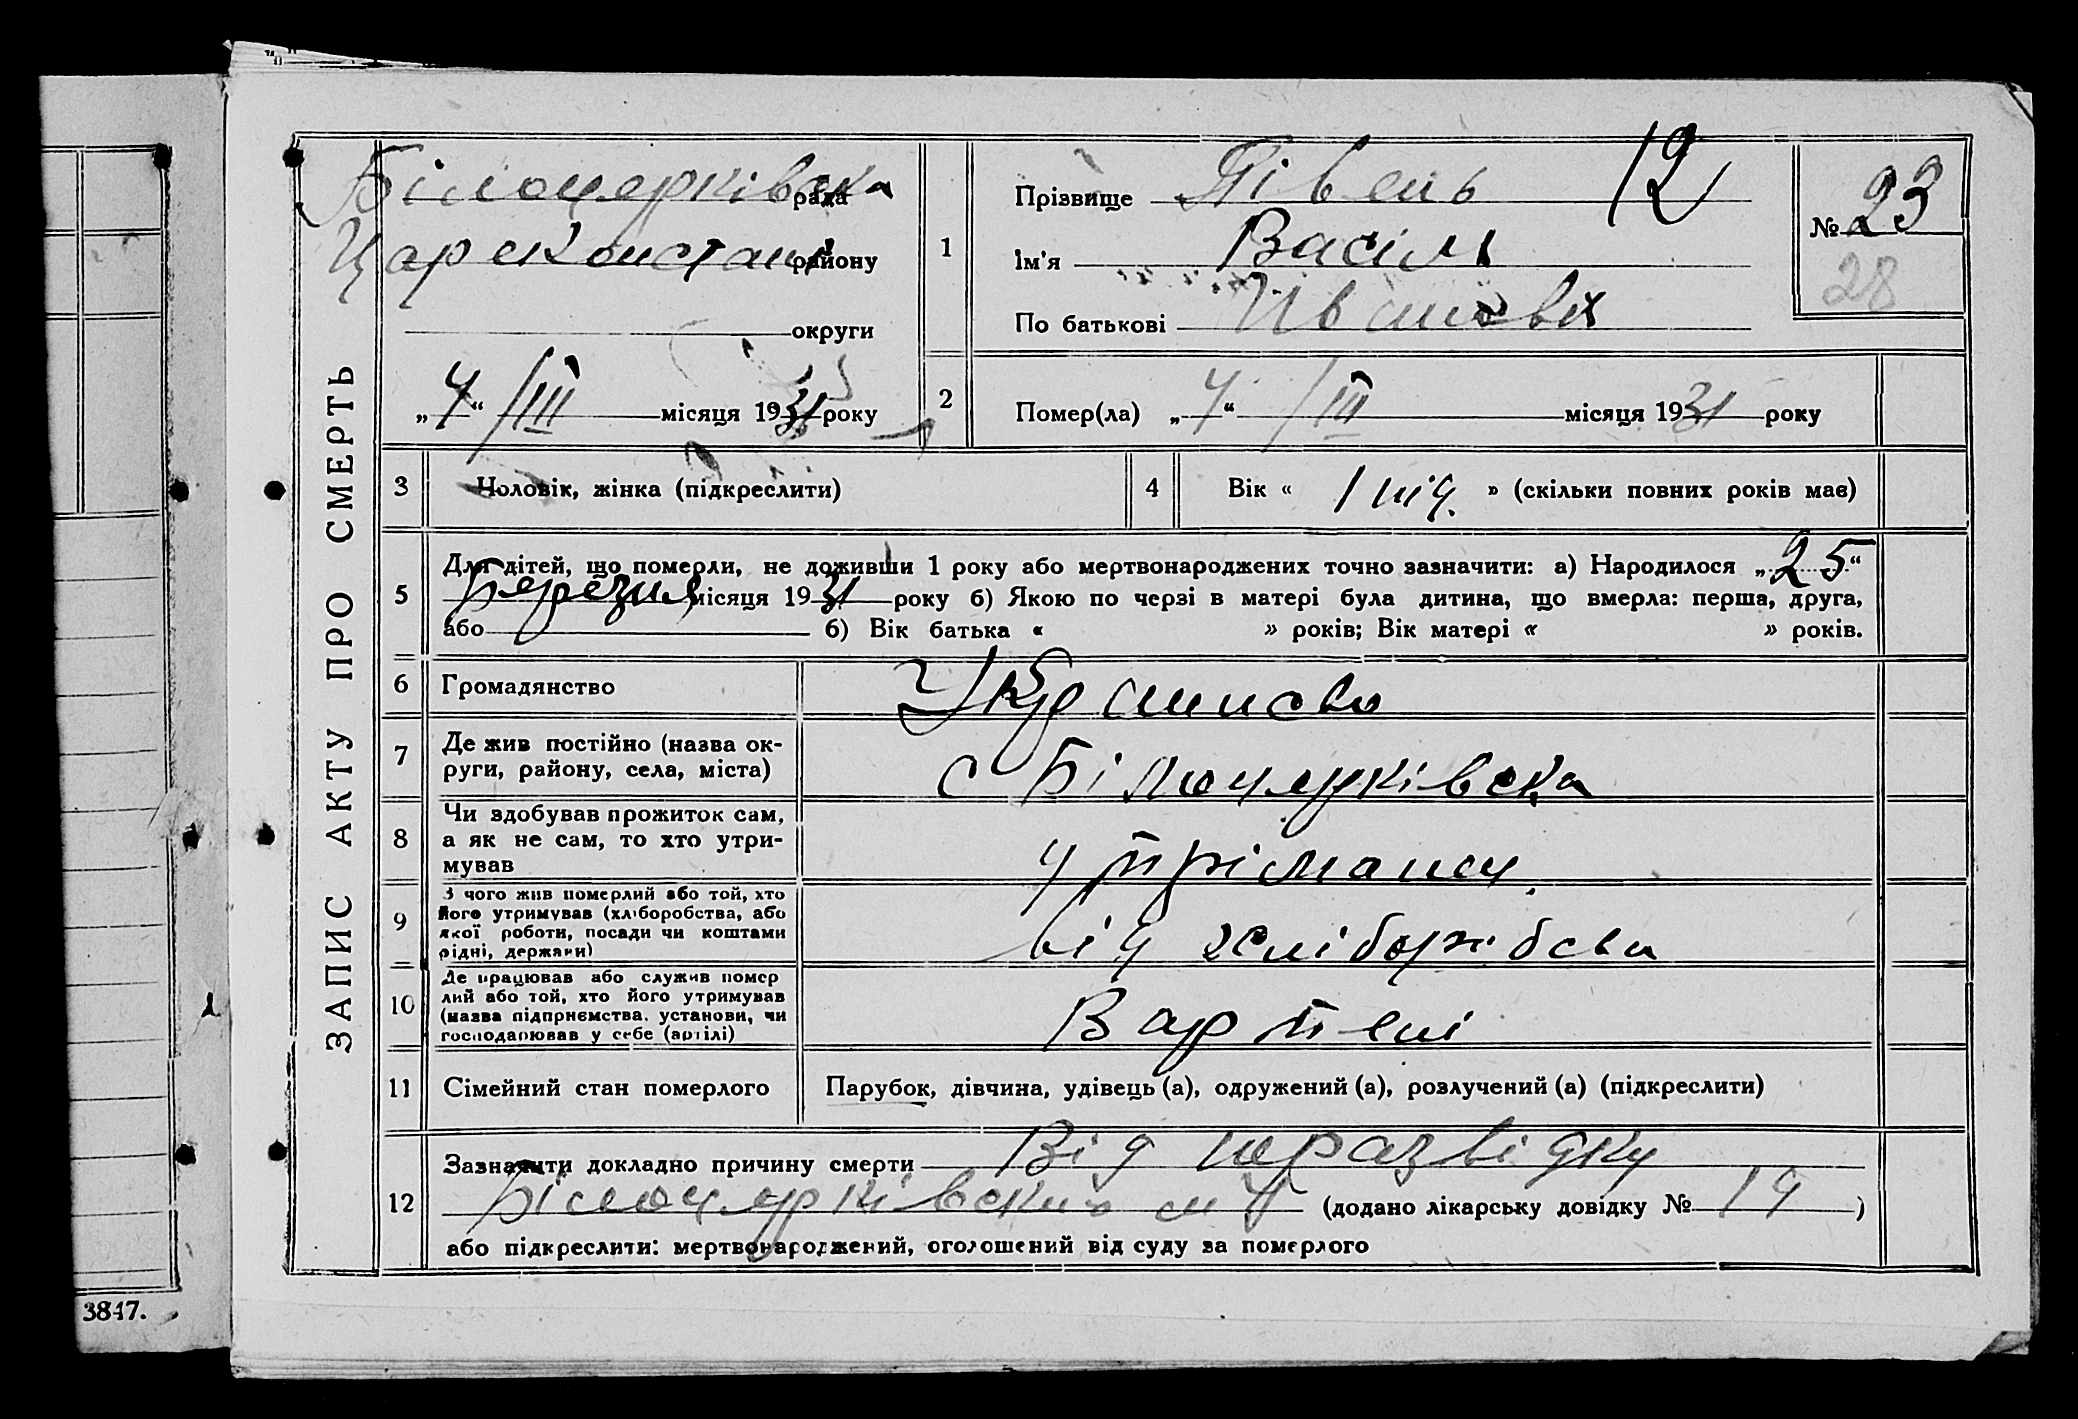 ЗАПИС АКТУ ПРО СМЕРТЬ
Білоцерківска рада
Царекостант району
округи
„4“ /III місяця 1931 року
1
Прізвище Півень 12
Ім'я Васіль
По батькові Івановіч
№ 23
28
2
Помер(ла) „4“ /III місяця 1931 року
3 Чоловік, жінка (підкреслити)
4 Вік « 1 під. » (скільки повних років має)
5 Для дітей, що померли, не доживши 1 року або мертвонароджених точно зазначити: а) Народилося „25“
Березня місяця 1931 року б) Якою по черзі в матері була дитина, що вмерла: перша, друга,
або б) Вік батька « » років; Вік матері « » років.
6 Громадянство Украінсво
7 Де жив постійно (назва ок-
руги, району, села, міста) с Білоцерківска
8 Чи здобував прожиток сам,
а як не сам, то хто утри-
мував утріманец
9 З чого жив померлий або той, хто
його утримував (хліборобства, або
якої роботи, посади чи коштами
рідні, держави) від хліборобсва
10 Де працював або служив помер
лий або той, хто його утримував
(назва підприємства, установи, чи
господарював у себе (артілі) В артелі
11 Сімейний стан померлого Парубок, дівчина, удівець (а), одружений (а), розлучений (а) (підкреслити)
12 Зазначити докладно причину смерти Від
Білоцерківским (додано лікарську довідку № 19)
або підкреслити: мертвонароджений, оголошений від суду за померлого
3847.